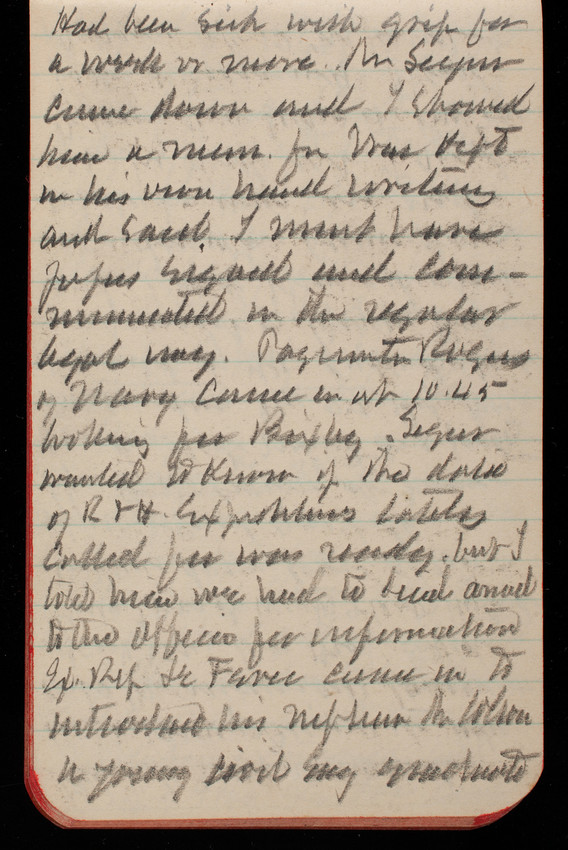 Had been sick with grip for
a week or more. Mr Seger
came down and I showed
him a mem. for War Dept
in his own hand writing
and said I must have
papers signed and com-
municated in the regular
legal way. Paymaster Rogers
of Navy came in at 10.45
looking for Bixby. Seger
wanted to know if the data
of R & H. Expenditures lately
called for was ready. but I
told him we had to send around
to the offices for information
Ex. Rep Le Fever came in to
introduce his nephew Mr
a young civil Eng graduate